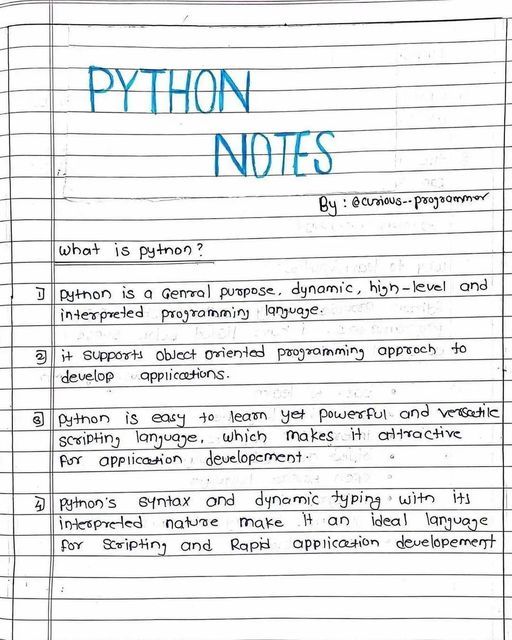 PYTHON
NOTES
By : @curious--programmer
What is python?
1) python is a Genral purpose, dynamic, high-level and
interpreted programming language.
2) it supports object oriented programming approch to
develop applications.
3) python is easy to learn yet powerful and versatile
scripting language, which makes it attractive
for application developement.
4) python's syntax and dynamic typing with its
interpreted nature make it an ideal language
for scripting and Rapid application developement